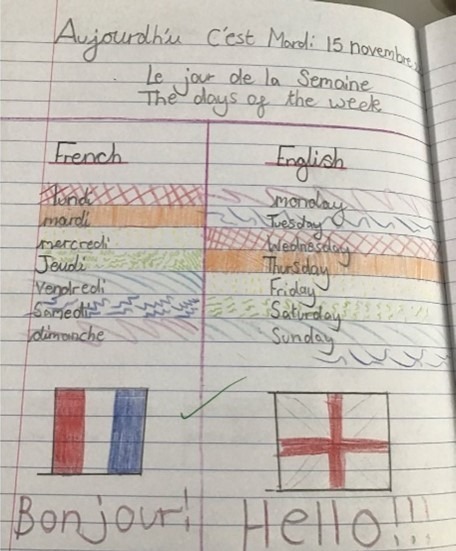 Aujourdh'u C'est Mardi 15 novembre
Le jour de la Semaine
The days of the week
French English
lundi monday
mardi Tuesday
mercredi Wednesday
Jeudi Thursday
Vendredi Friday
Samedi Saturday
dimanche Sunday
Bonjour! Hello!!!